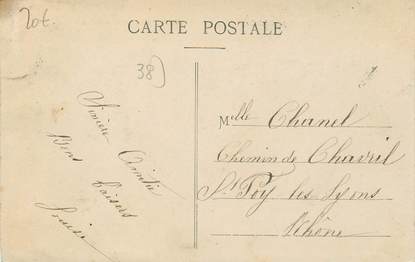 20€
CARTE POSTALE
38)
Sincère Amitié
Bons baisers
Louise
Melle Chanel
Chemin de Chavril
St Foy les Lyons
Rhône